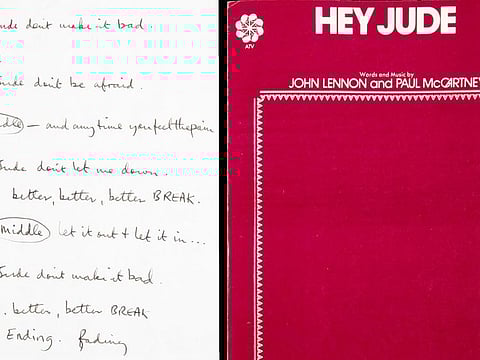 Jude dont make it bad.
Jude don't be afraid.
middle — and anytime you feel the pain
Jude don't let me down.
better, better, better BREAK.
middle let it out & let it in...
Jude dont make it bad.
. better, better BREAK
Ending. fading
HEY JUDE
ATV
Words and Music by
JOHN LENNON and PAUL McCARTNEY